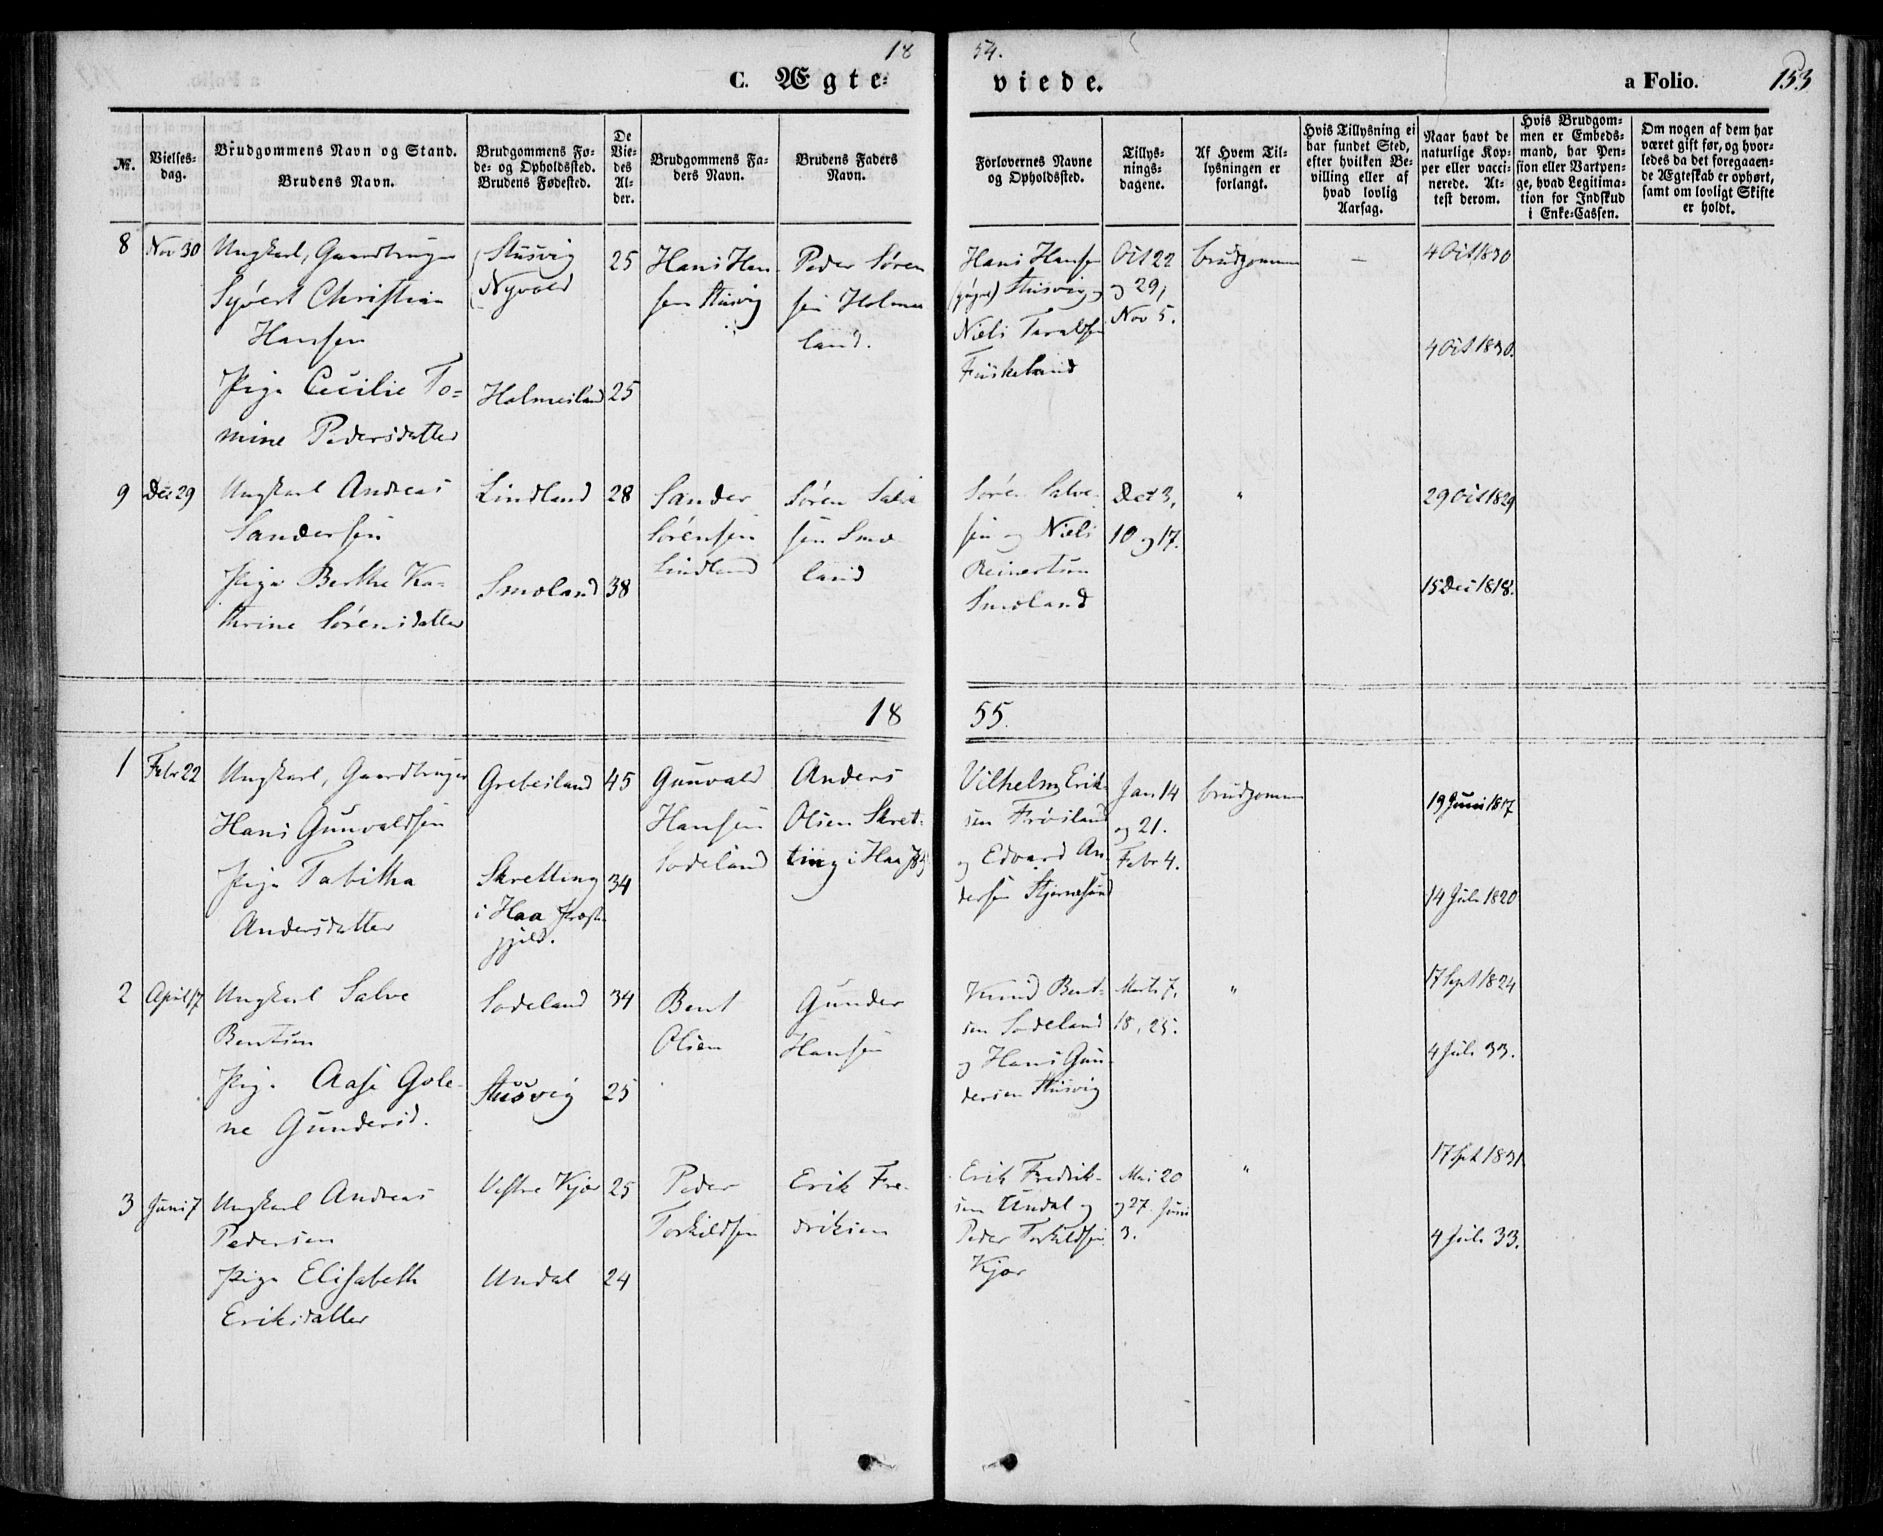 18 54.
C. Ægteviede. a Folio. 153
№.
Vielsesdag.
Brudgommens Navn og Stand.
Brudens Navn.
Brudgommens Føde- og Opholdssted.
Brudens Fødested.
De Viedes Alder.
Brudgommens Faders Navn.
Brudens Faders Navn.
Forlovernes Navne og Opholdssted.
Tillysningsdagene.
Af Hvem Tillysningen er forlangt.
Hvis Tillysning ei har fundet Sted, efter hvilken Bevilling eller af hvad lovlig Aarsag.
Naar havt de naturlige Kopper eller vaccinerede. Attest derom.
Hvis Brudgommen er Embedsmand, har Pension eller Vartpenge, hvad Legitimation for Indskud i Enke-Cassen.
Om nogen af dem har været gift før, og hvorledes da det foregaaende Ægteskab er ophørt, samt om lovligt Skifte er holdt.
8 Nov 30 Ungkarl, Gaardbruger
Syvert Christian
Hansen
Pige Cecilie To=
mine Pedersdatter
Stusvig
Nyvold
Holmesland
25
25
Hans Han
sen Stusvig
Peder Søren
sen Holmes
land.
Hans Hansen
(yngre) Stusvig og
Niels Taraldsen
Fuskeland
Oct 22
og 29,
Nov 5.
brudgommen
—
4 Oct 1830
4 Oct 1830.
9 Dec 29 Ungkarl Andreas
Sandersen
Pige Berthe Ka-
thrine Sørensdatter
Lindland
Smoland
28
38
Sander
Sørensen
Lindland
Søren Salve
sen Smo
land
Søren Salve-
sen og Niels
Reinertsen
Smoland
Dec 3,
10 og 17.
"
29 Oct 1829
15 Dec 1818.
18 55.
1 Febr 22 Ungkarl, Gaardbruger
Hans Gunvaldsen
Pige Tabitha
Andersdatter
Grebesland
Skretting
i Haa Præste
gjeld.
45
34
Gunvald
Hansen
Sodeland
Anders
Olsen Skret-
ting i Haa
Vilhelm Erik-
sen Frøisland
og Edvard An
dersen Stjernesund
Jan 14
og 21.
Febr 4.
brudgommen
19 Juni 1817
14 Juli 1820
2 April 17 Ungkarl Salve
Bentsen
Pige Aase Gole-
ne Gundersd.
Sodeland
Stusvig
34
25
Bent
Olsen
Gunder
Hansen
Knud Bent-
sen Sodeland
og Hans Gun-
dersen Stusvig
Marts 7,
18, 25.
"
17 Sept 1824
4 Juli 33.
3 Juni 7 Ungkarl Andreas
Pedersen
Pige Elisabeth
Eriksdatter
Vestre Kjær
Undal
25
24
Peder
Torkildsen
Erik Fre-
driksen
Erik Fredrik-
sen Undal og
Peder Torkildsen
Kjær
Mai 20
og 27. Juni
3.
"
17 Sept 1831
4 Juli 33.